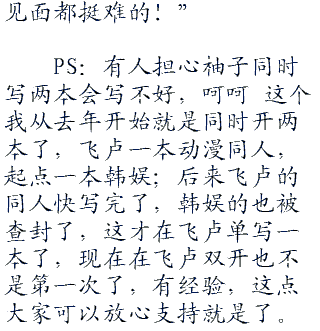 见面都挺难的！”
PS：有人担心柚子同时
写两本会写不好，呵呵 这个
我从去年开始就是同时开两
本了，飞卢一本动漫同人，
起点一本韩娱；后来飞卢的
同人快写完了，韩娱的也被
查封了，这才在飞卢单写一
本了，现在在飞卢双开也不
是第一次了，有经验，这点
大家可以放心支持就是了。